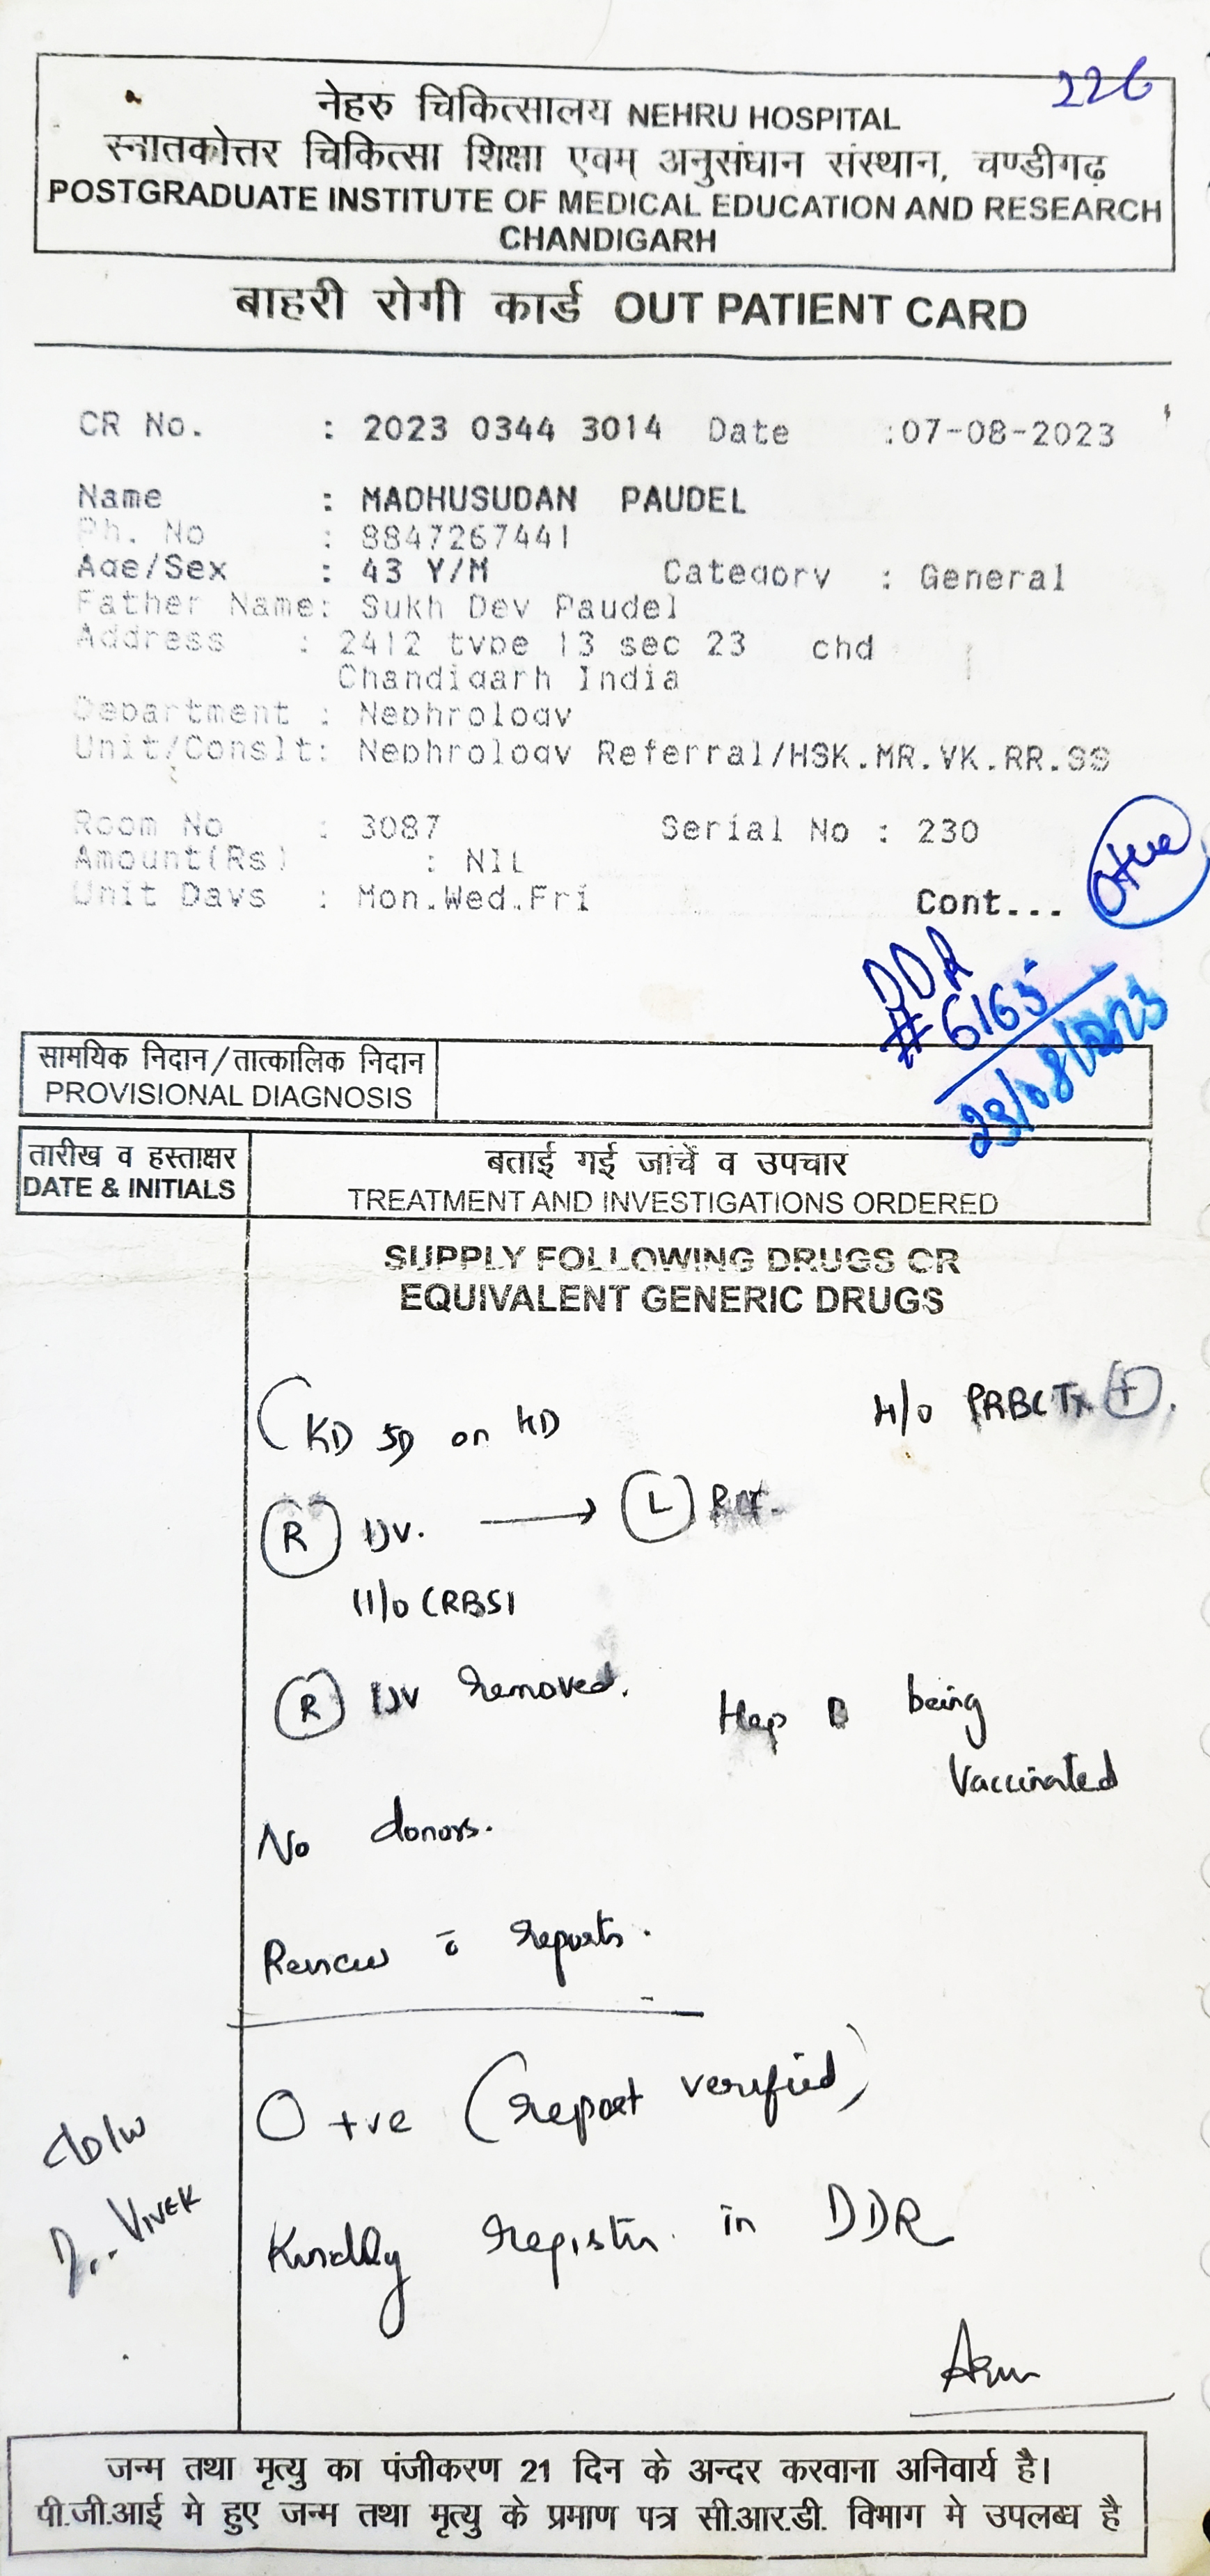 226
नेहरु चिकित्सालय NEHRU HOSPITAL
स्नातकोत्तर चिकित्सा शिक्षा एवम् अनुसंधान संस्थान, चण्डीगढ़
POSTGRADUATE INSTITUTE OF MEDICAL EDUCATION AND RESEARCH
CHANDIGARH
बाहरी रोगी कार्ड OUT PATIENT CARD
CR No. : 2023 0344 3014 Date :07-08-2023
Name : MADHUSUDAN PAUDEL
Ph. No : 8847267441
Age/Sex : 43 Y/M Category : General
Father Name: Sukh Dev Paudel
Address : 2412 type 13 sec 23 chd
Chandigarh India
Department : Nephrology
Unit/Conslt: Nephrology Referral/HSK.MR.VK.RR.SS
Room No : 3087 Serial No : 230
Amount(Rs) : NIL
Unit Days : Mon.Wed.Fri Cont...
O+ve
DDR
#6165
23/08/2023
सामयिक निदान/तात्कालिक निदान
PROVISIONAL DIAGNOSIS
तारीख व हस्ताक्षर बताई गई जांचें व उपचार
DATE & INITIALS TREATMENT AND INVESTIGATIONS ORDERED
SUPPLY FOLLOWING DRUGS OR
EQUIVALENT GENERIC DRUGS
CKD 5D on HD H/o PRBC Tx (+).
(R) IJV. → (L)
H/o CRBSI
(R) IJV removed. Hep B being
Vaccinated
No donors.
Review c̄ reports.
O +ve (report verified)
d/w
Dr. VIVEK
Kindly register in DDR
जन्म तथा मृत्यु का पंजीकरण 21 दिन के अन्दर करवाना अनिवार्य है।
पी.जी.आई मे हुए जन्म तथा मृत्यु के प्रमाण पत्र सी.आर.डी. विभाग मे उपलब्ध है